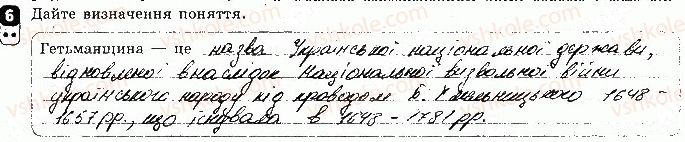 6 Дайте визначення поняття.
Гетьманщина — це назва Української національної держави,
відновленої внаслідок Національної визвольної війни
українського народу під проводом Б. Хмельницького 1648 -
1657 рр., що існувала в 1648 - 1781 рр.